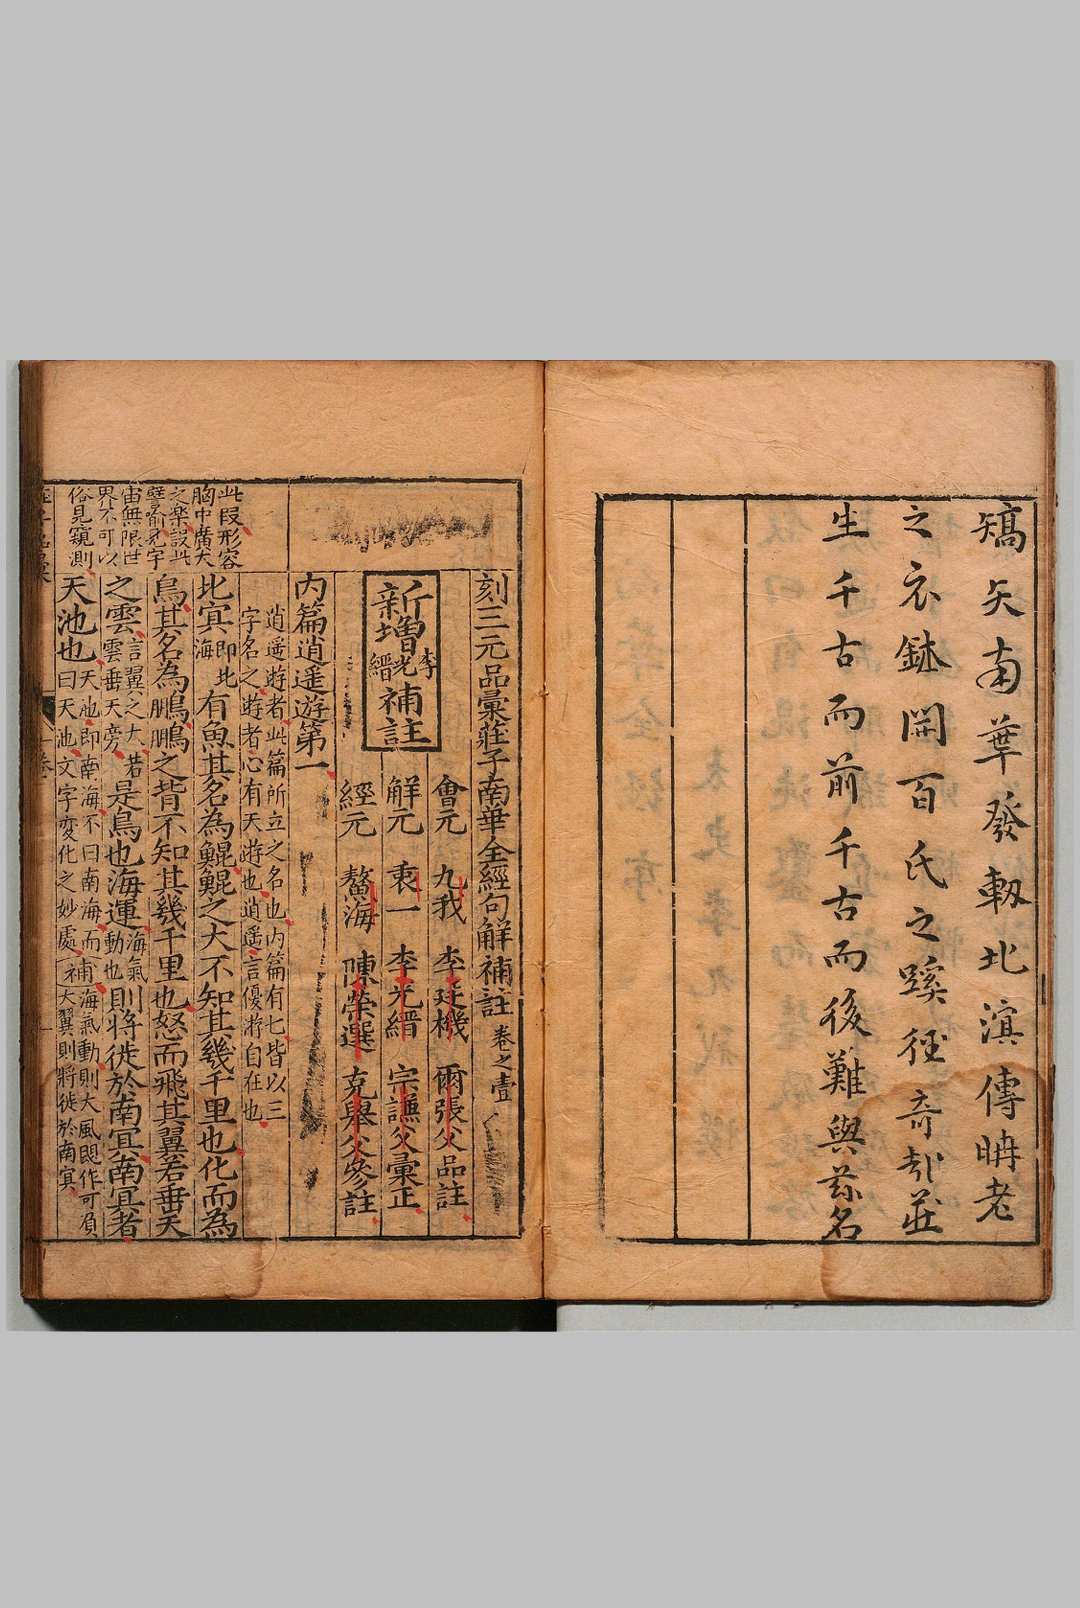 矯矢南華發軔北濵傳聃老
之衣鉢開百氏之蹊徑奇哉莊
生千古而前千古而後難與茲名
刻三元品彙莊子南華全經句解補註 卷之壹
新增李光縉補註
會元 九我 李廷機 爾張父品註
解元 衷一 李光縉 宗謙父彙正
經元 鰲海 陳榮選 克舉父參註
內篇逍遥遊第一
逍遥遊者此篇所立之名也內篇有七皆以三
字名之遊者心有天遊也逍遥言優游自在也
此段形容
胸中廣大
之樂設此
譬喻見宇
宙無限世
界不可以
俗見窺測
北㝠即北海有魚其名為鯤鯤之大不知其幾千里也化而為
鳥其名為鵬鵬之背不知其幾千里也怒而飛其翼若垂天
之雲言翼之大若雲垂天旁是鳥也海運海氣動也則將徙於南㝠南㝠者
天池也天池即南海不曰南海而曰天池文字変化之妙處補海氣動則大風即作可負大翼則將徙於南㝠